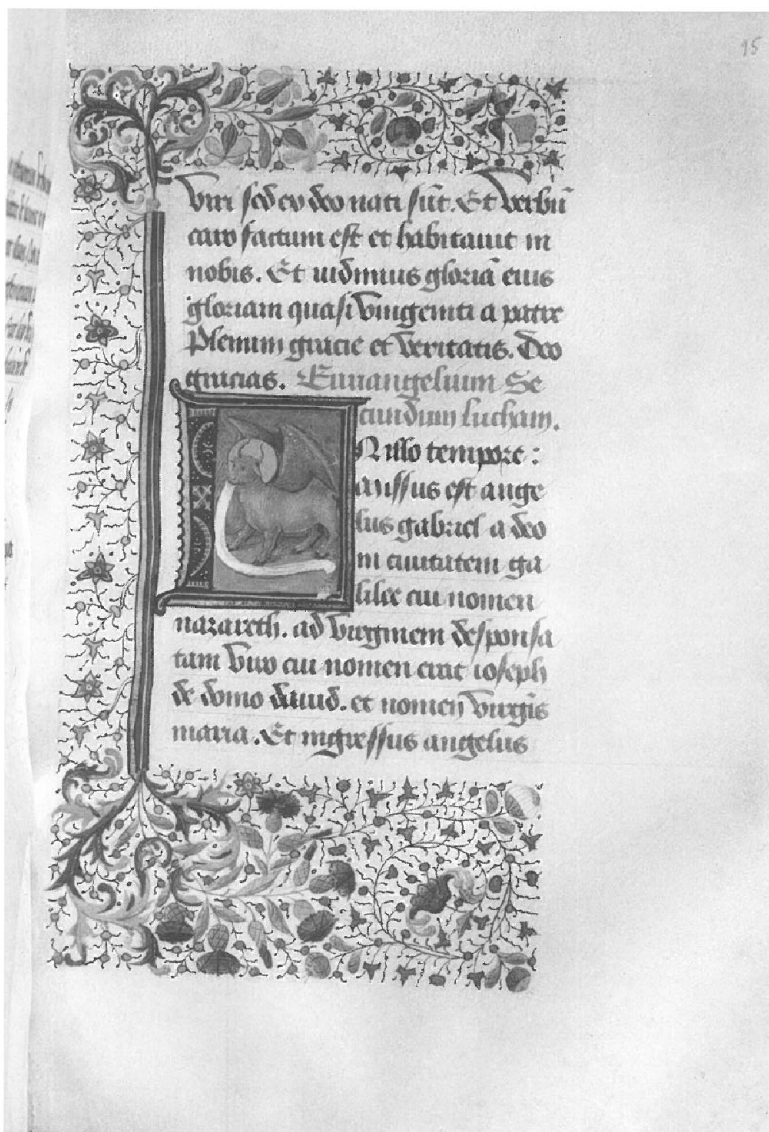 15
viri sed ex deo nati sūt. Et verbū
caro factum est et habitauit in
nobis. Et uidimus gloriā eius
gloriam quasi vnigeniti a patre
Plenum gracie et veritatis. Deo
gracias. Euuangelium Se
cundum lucham.
N illo tempore:
missus est ange
lus gabriel a deo
in ciuitatem ga
lilee cui nomen
nazareth. ad virginem desponsa
tam viro cui nomen erat ioseph
de domo dauid. et nomen virgīs
maria. Et ingressus angelus